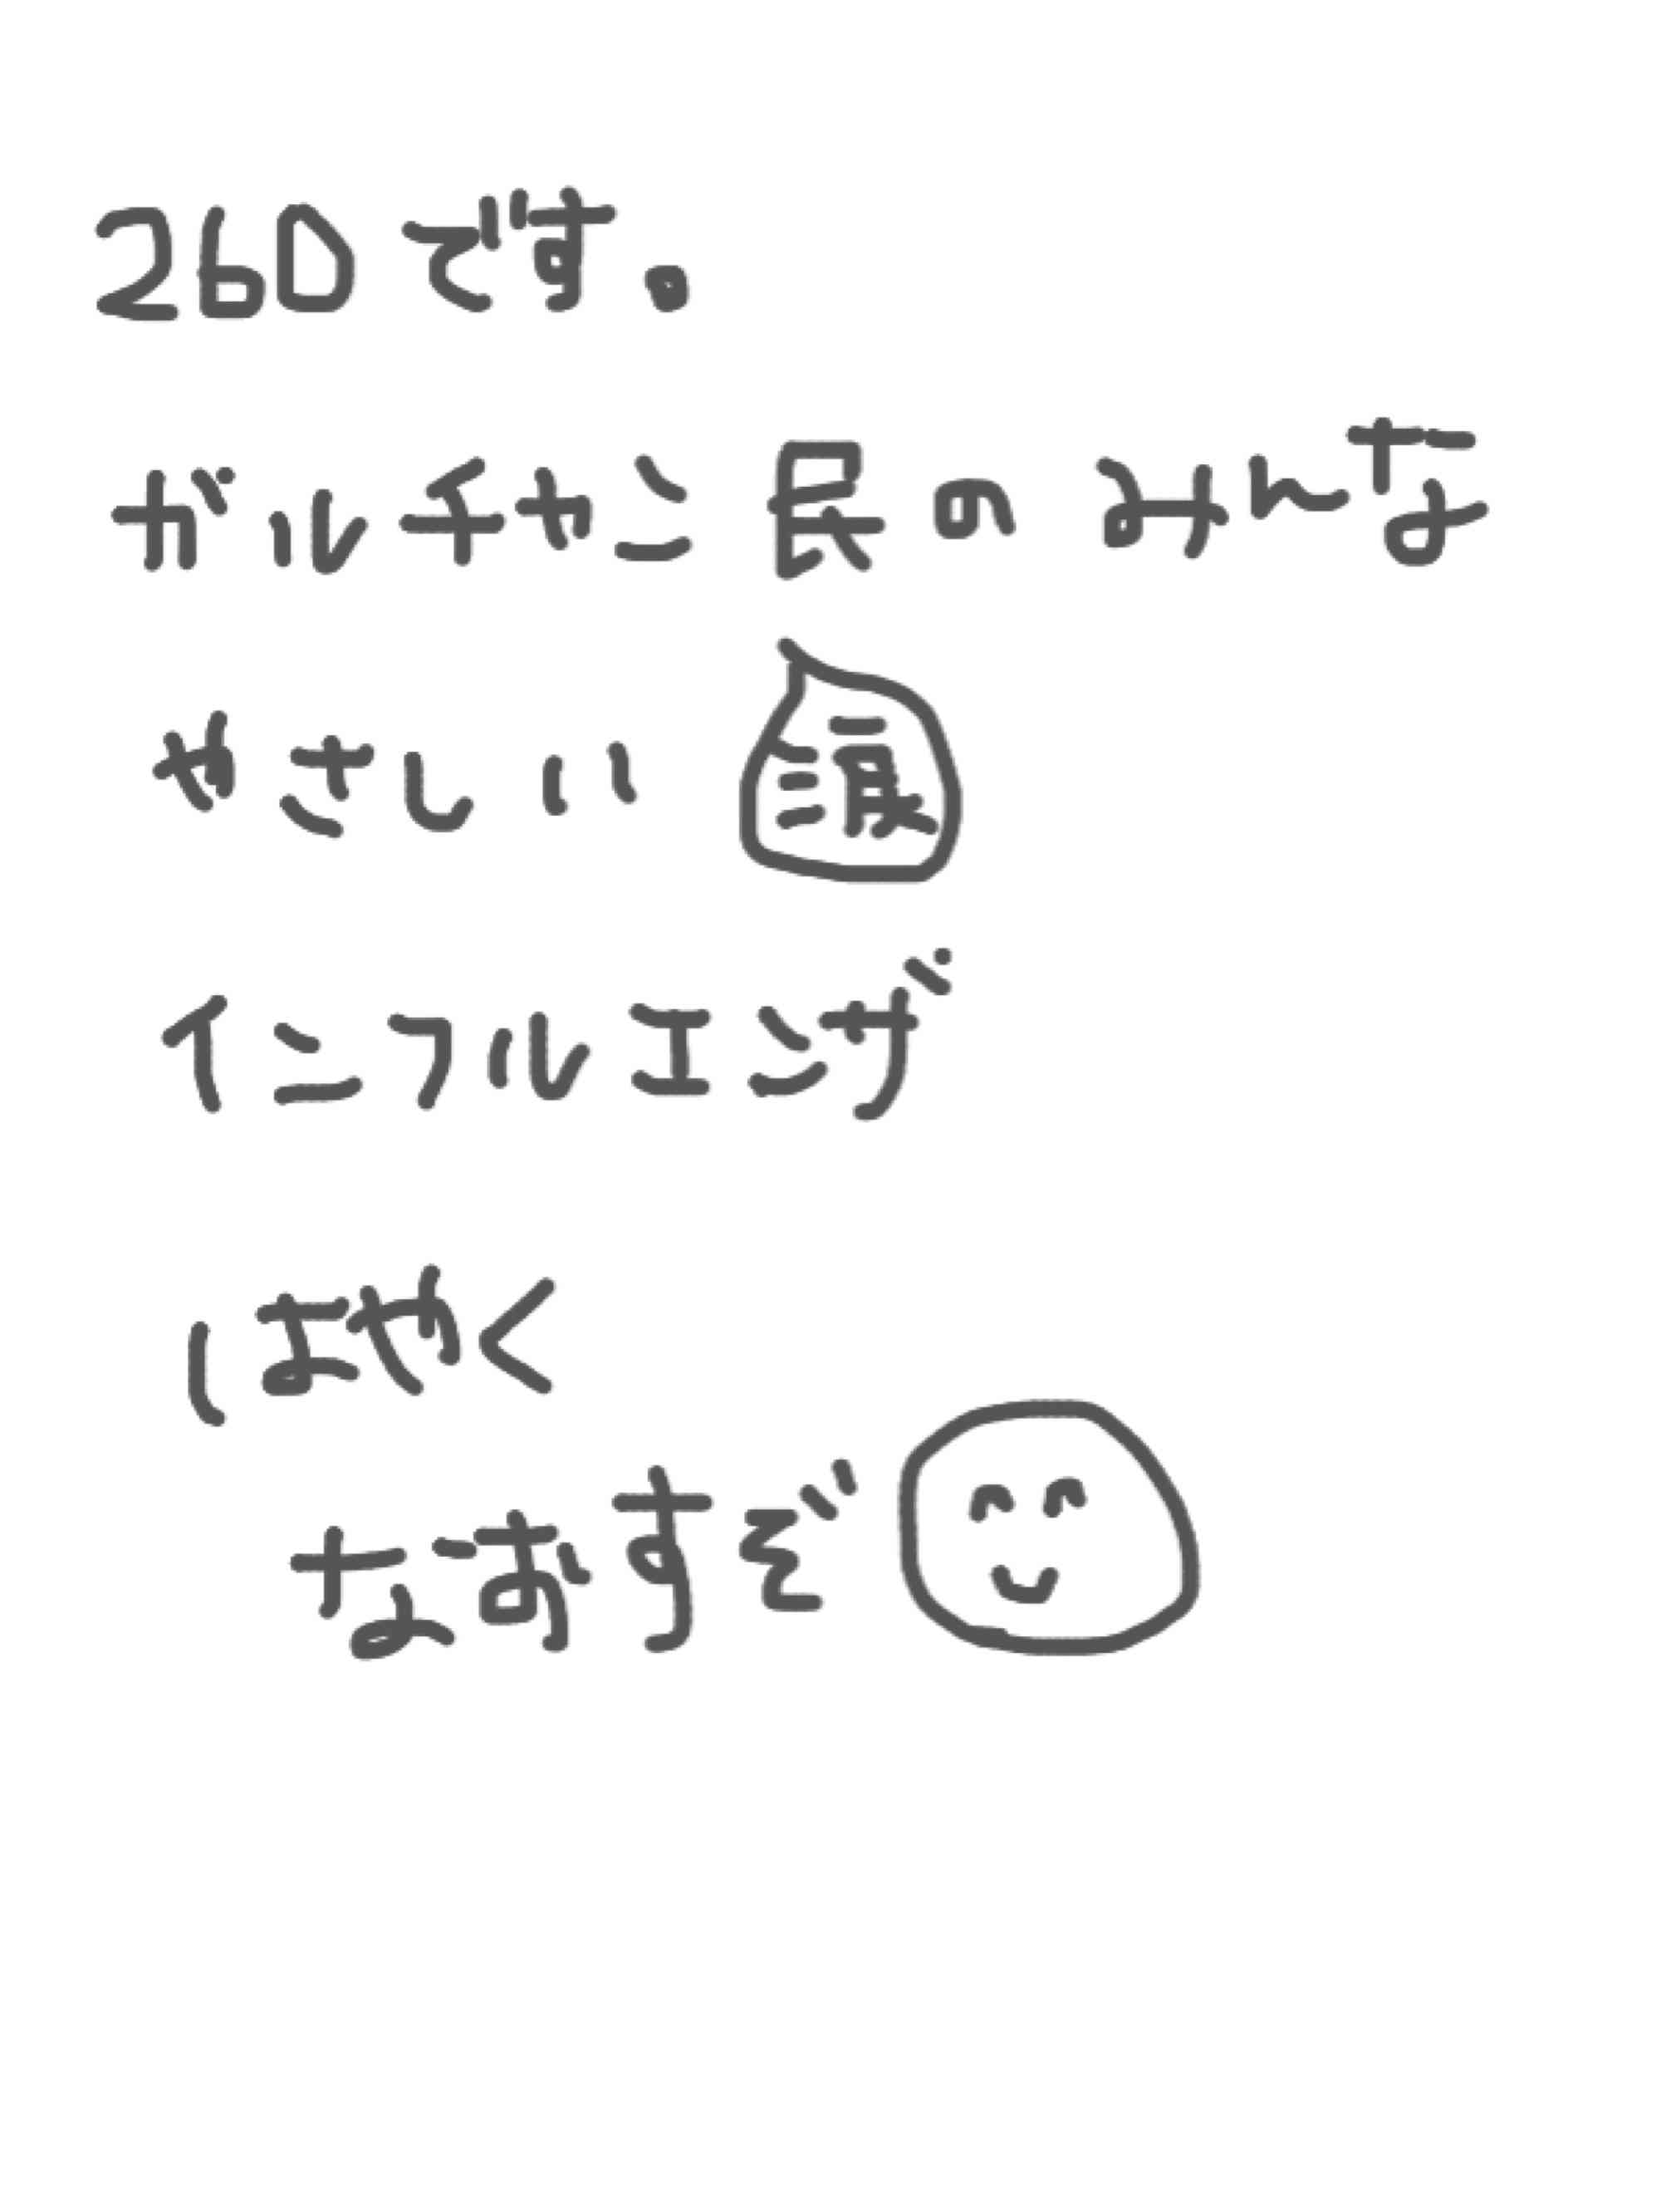 260です。
ガルチャン民のみんな
やさしい 涙
インフルエンザ
はやく
なおすぞ